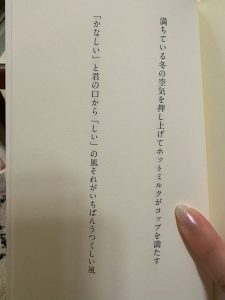 満ちている冬の空気を押し上げてホットミルクがコップを満たす
「かなしい」と君の口から「しい」の風それがいちばんうつくしい風